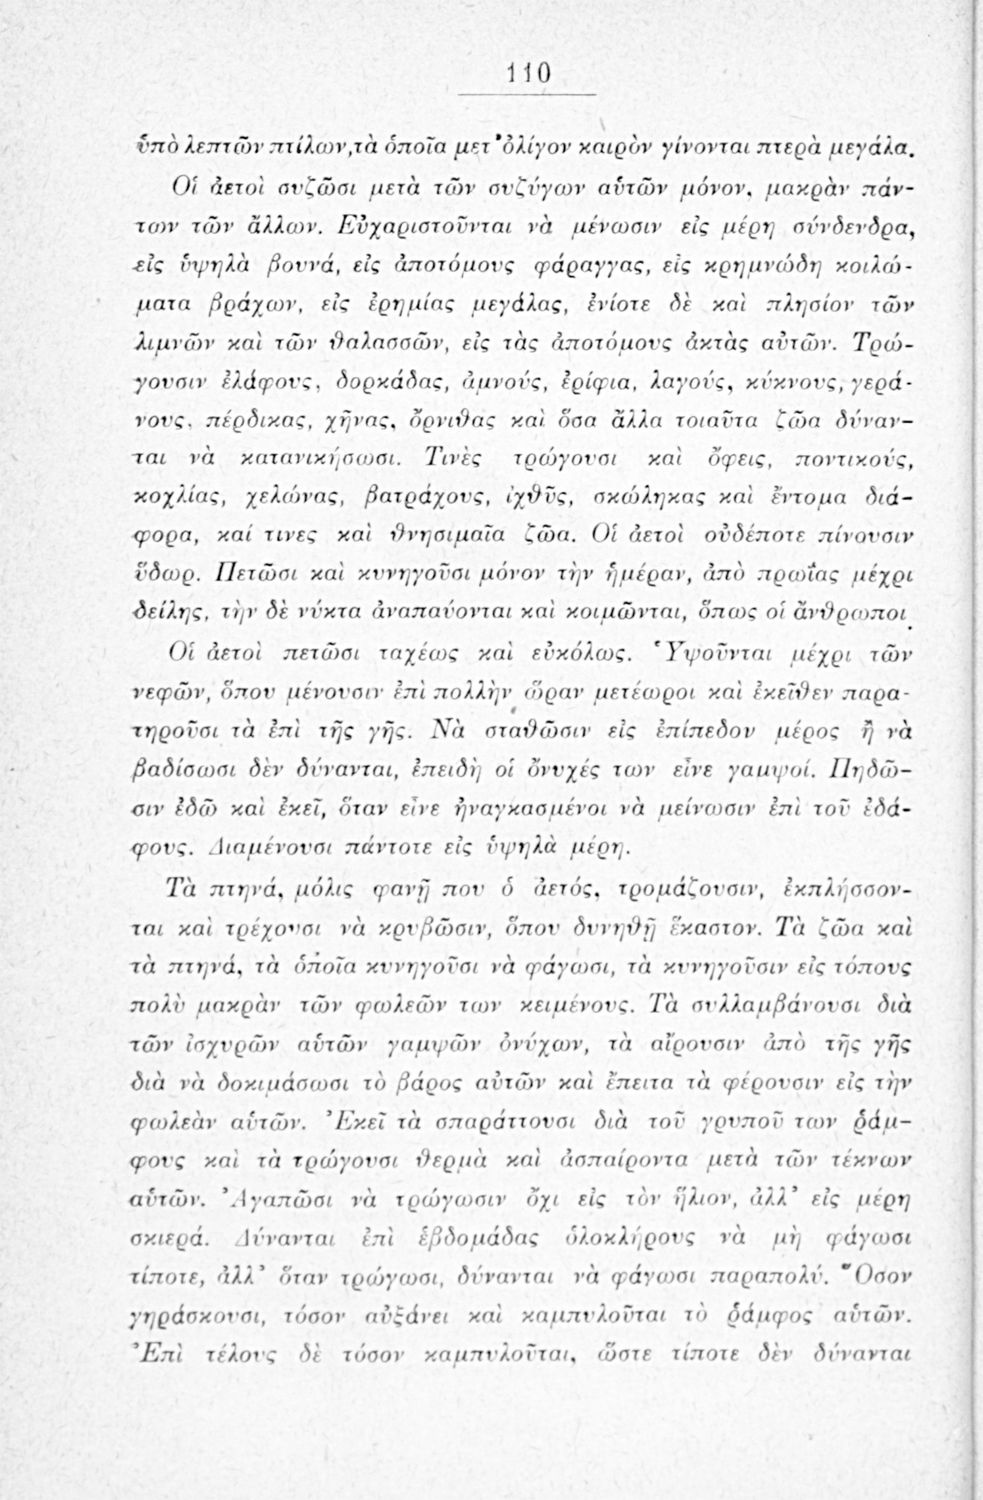 110
ὑπὸ λεπτῶν πτίλων, τὰ ὁποῖα μετ᾿ ὀλίγον καιρὸν γίνονται πτερὰ μεγάλα.
Οἱ ἀετοὶ συζῶσι μετὰ τῶν συζύγων αὑτῶν μόνον, μακρὰν πάν-
των τῶν ἄλλων. Εὐχαριστοῦνται νὰ μένωσιν εἰς μέρη σύνδενδρα,
εἰς ὑψηλὰ βουνά, εἰς ἀποτόμους φάραγγας, εἰς κρημνώδη κοιλώ-
ματα βράχων, εἰς ἐρημίας μεγάλας, ἐνίοτε δὲ καὶ πλησίον τῶν
λιμνῶν καὶ τῶν θαλασσῶν, εἰς τὰς ἀποτόμους ἀκτὰς αὐτῶν. Τρώ-
γουσιν ἐλάφους, δορκάδας, ἀμνούς, ἐρίφια, λαγούς, κύκνους, γερά-
νους, πέρδικας, χῆνας, ὄρνιθας καὶ ὅσα ἄλλα τοιαῦτα ζῶα δύναν-
ται νὰ κατανικήσωσι. Τινὲς τρώγουσι καὶ ὄφεις, ποντικούς,
κοχλίας, χελώνας, βατράχους, ἰχθῦς, σκώληκας καὶ ἔντομα διά-
φορα, καί τινες καὶ θνησιμαῖα ζῶα. Οἱ ἀετοὶ οὐδέποτε πίνουσιν
ὕδωρ. Πετῶσι καὶ κυνηγοῦσι μόνον τὴν ἡμέραν, ἀπὸ πρωΐας μέχρι
δείλης, τὴν δὲ νύκτα ἀναπαύονται καὶ κοιμῶνται, ὅπως οἱ ἄνθρωποι.
Οἱ ἀετοὶ πετῶσι ταχέως καὶ εὐκόλως. Ὑψοῦνται μέχρι τῶν
νεφῶν, ὅπου μένουσιν ἐπὶ πολλὴν ὥραν μετέωροι καὶ ἐκεῖθεν παρα-
τηροῦσι τὰ ἐπὶ τῆς γῆς. Νὰ σταθῶσιν εἰς ἐπίπεδον μέρος ἢ νὰ
βαδίσωσι δὲν δύνανται, ἐπειδὴ οἱ ὄνυχές των εἶνε γαμψοί. Πηδῶ-
σιν ἐδῶ καὶ ἐκεῖ, ὅταν εἶνε ἠναγκασμένοι νὰ μείνωσιν ἐπὶ τοῦ ἐδά-
φους. Διαμένουσι πάντοτε εἰς ὑψηλὰ μέρη.
Τὰ πτηνά, μόλις φανῇ που ὁ ἀετός, τρομάζουσιν, ἐκπλήσσον-
ται καὶ τρέχουσι νὰ κρυβῶσιν, ὅπου δυνηθῇ ἕκαστον. Τὰ ζῶα καὶ
τὰ πτηνά, τὰ ὁποῖα κυνηγοῦσι νὰ φάγωσι, τὰ κυνηγοῦσιν εἰς τόπους
πολὺ μακρὰν τῶν φωλεῶν των κειμένους. Τὰ συλλαμβάνουσι διὰ
τῶν ἰσχυρῶν αὑτῶν γαμψῶν ὀνύχων, τὰ αἴρουσιν ἀπὸ τῆς γῆς
διὰ νὰ δοκιμάσωσι τὸ βάρος αὐτῶν καὶ ἔπειτα τὰ φέρουσιν εἰς τὴν
φωλεὰν αὑτῶν. Ἐκεῖ τὰ σπαράττουσι διὰ τοῦ γρυποῦ των ῥάμ-
φους καὶ τὰ τρώγουσι θερμὰ καὶ ἀσπαίροντα μετὰ τῶν τέκνων
αὑτῶν. Ἀγαπῶσι νὰ τρώγωσιν ὄχι εἰς τὸν ἥλιον, ἀλλ᾿ εἰς μέρη
σκιερά. Δύνανται ἐπὶ ἑβδομάδας ὁλοκλήρους νὰ μὴ φάγωσι
τίποτε, ἀλλ᾿ ὅταν τρώγωσι, δύνανται νὰ φάγωσι παραπολύ. Ὅσον
γηράσκουσι, τόσον αὐξάνει καὶ καμπυλοῦται τὸ ῥάμφος αὑτῶν.
Ἐπὶ τέλους δὲ τόσον καμπυλοῦται, ὥστε τίποτε δὲν δύνανται